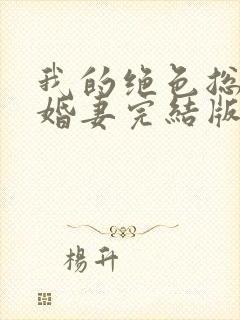 我的绝色总
婚妻完結版
楊升